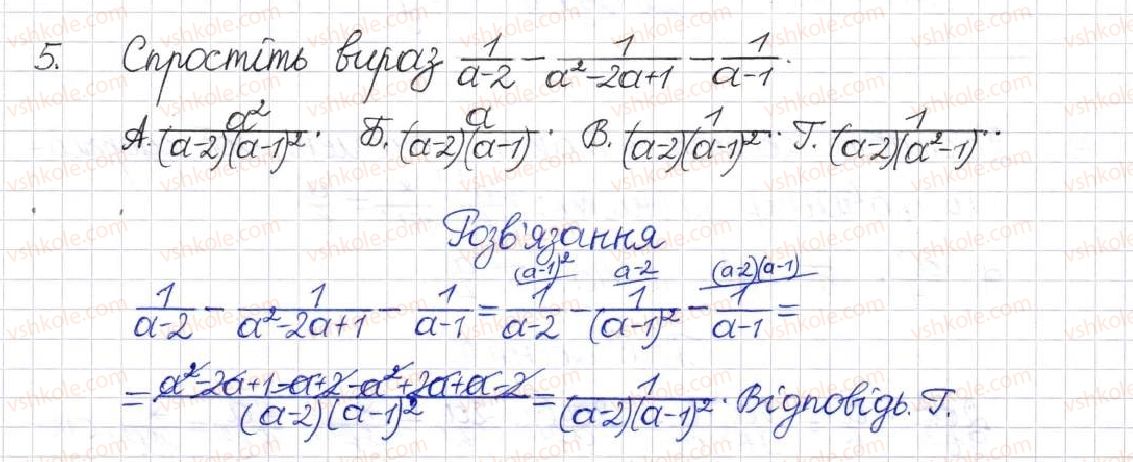 5. Спростіть вираз 1/(a-2) - 1/(a²-2a+1) - 1/(a-1).
А. a²/((a-2)(a-1)²). Б. a/((a-2)(a-1)). В. 1/((a-2)(a-1)²). Г. 1/((a-2)(a²-1))..
Розв'язання
(a-1)² a-2 (a-2)(a-1)
1/(a-2) - 1/(a²-2a+1) - 1/(a-1) = 1/(a-2) - 1/(a-1)² - 1/(a-1) =
= (a²-2a+1-a+2-a²+2a+a-2)/((a-2)(a-1)²) = 1/((a-2)(a-1)²). Відповідь. Г.